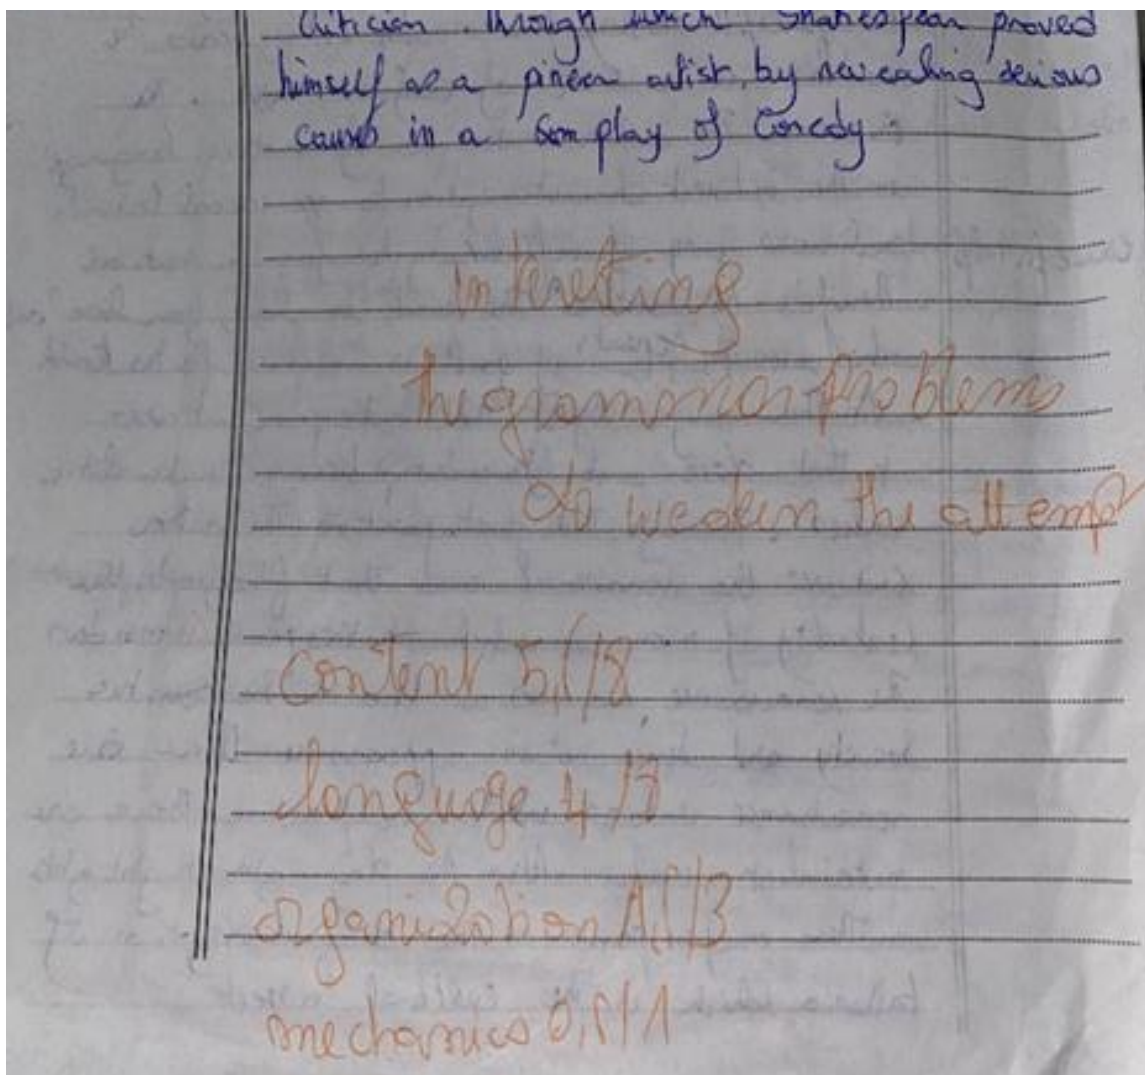 Criticism. through which Shakespear proved
himself as a pineer artist, by revealing serious
causes in a play of Comedy.
interesting
the grammar problems
do weaken the attempt
Content 5,5/8
language 4/8
organization 1,5/3
mechanics 0,5/1